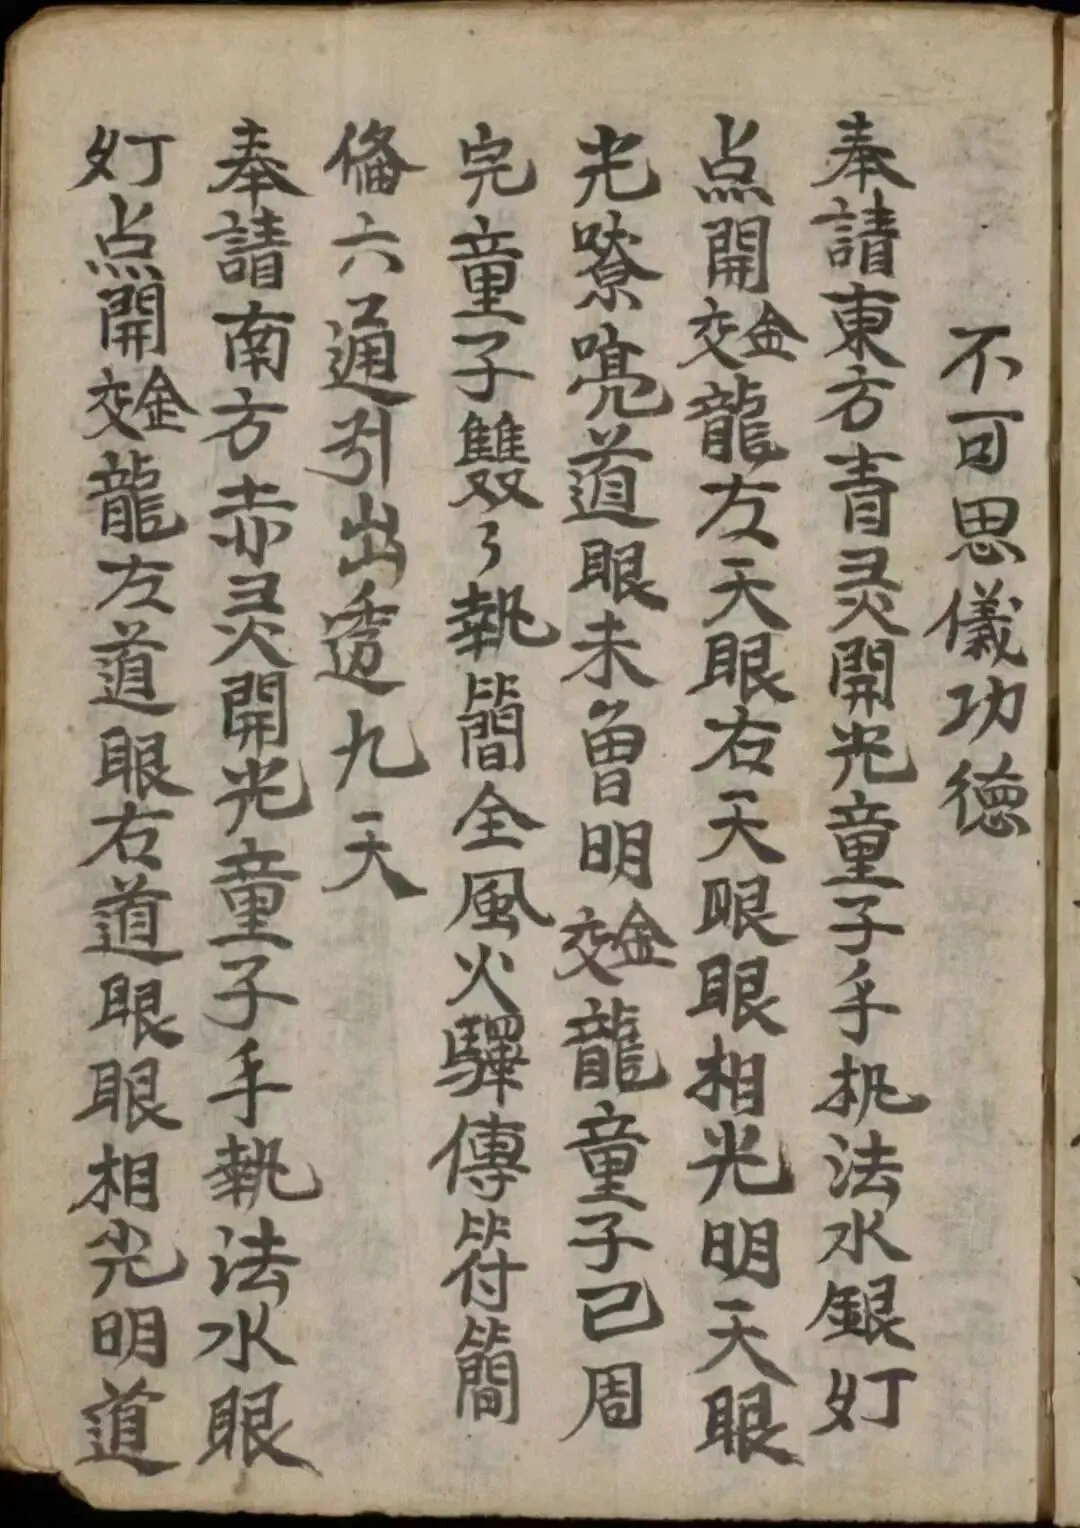 不可思儀功德
奉請東方青灵開光童子手执法水銀灯
点開蛟龍左天眼右天眼眼相光明天眼
光嘹喨道眼未曾明鉸龍童子已周
完童子雙了執簡全風火驛傳符簡
俻六通引出透九天
奉請南方赤灵開光童子手執法水眼
灯点開鉸龍左道眼右道眼眼相光明道